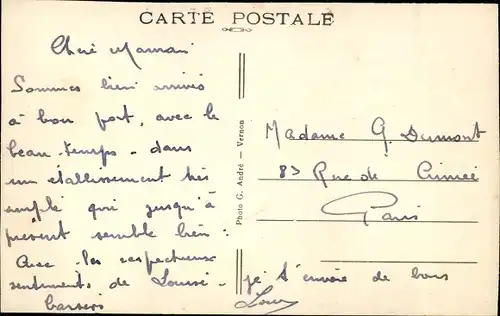 CARTE POSTALE
Chère Maman
Sommes bien arrivés
à bon port, avec le
beau-temps - dans
un etablissement très
simple qui jusqu'à
présent semble bien :
Avec les respectueux
sentiments de Louise -
je t'envoie de bons
baisers
Photo G. André — Vernon
Madame G. Dumont
83 Rue de Crimée
Paris